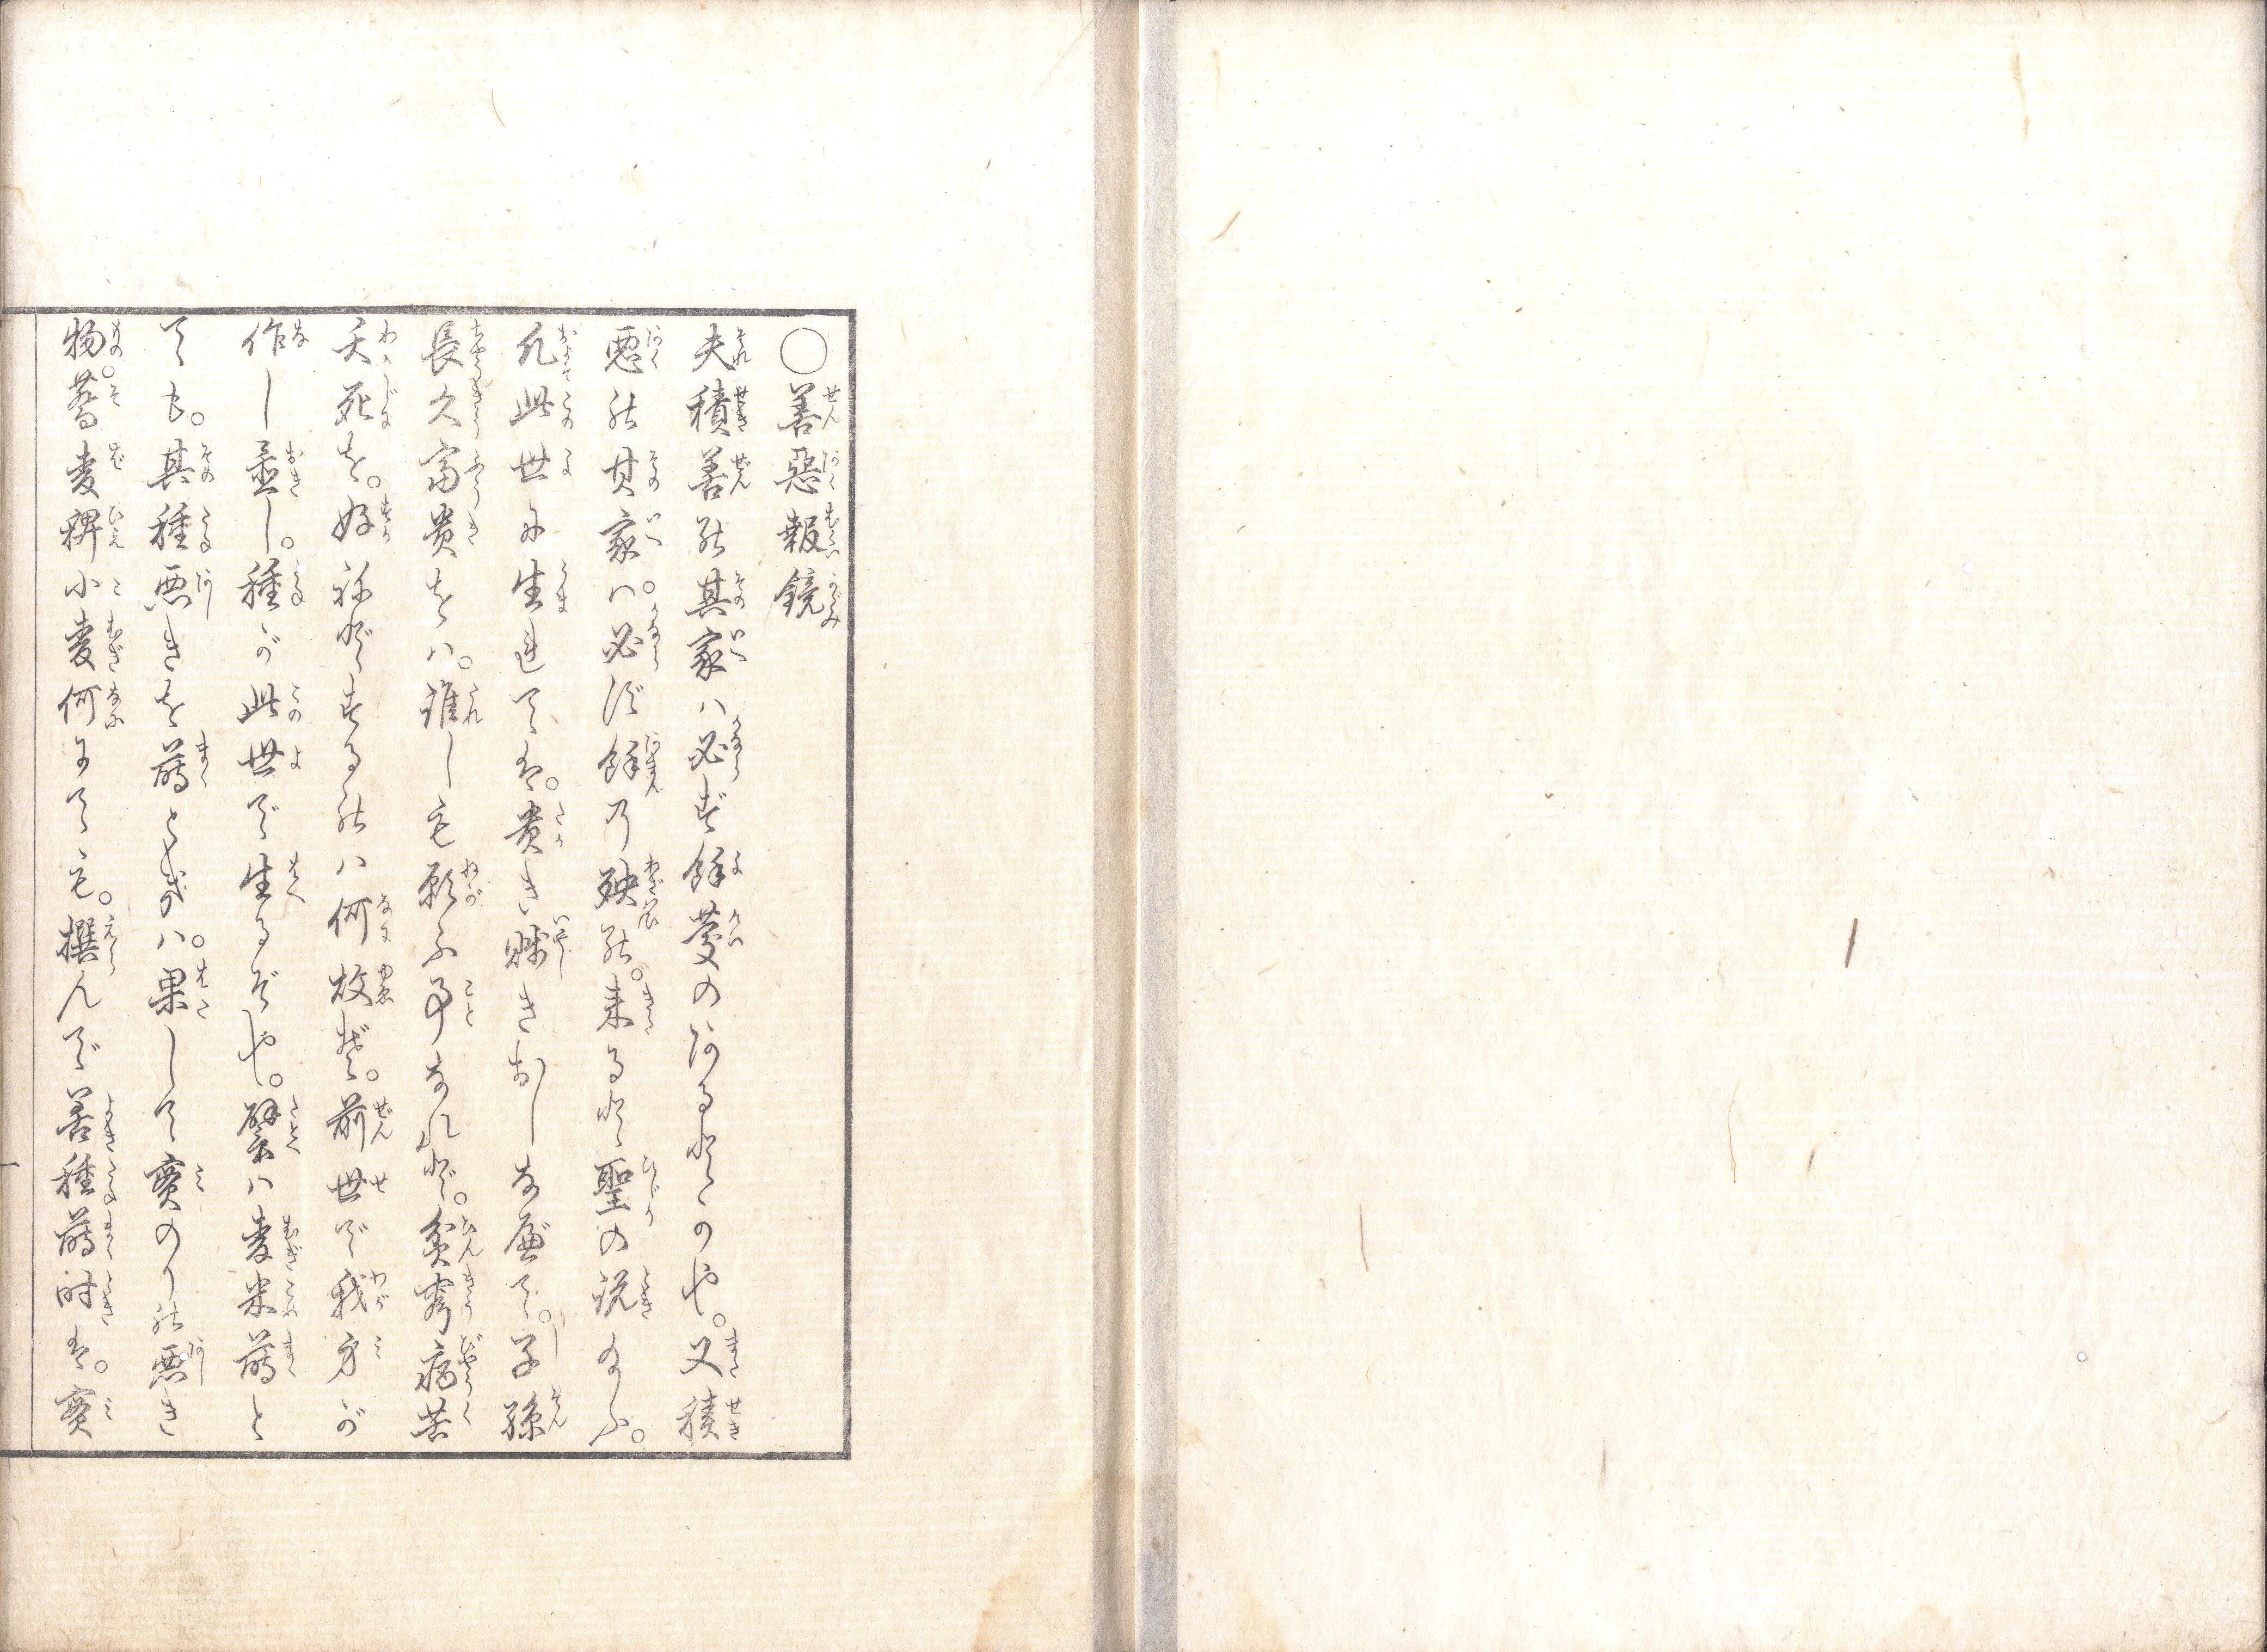 〇善惡報鏡
夫積善能其家ハ必ず餘慶のあるとかや。又積
悪能其家ハ。必ず餘乃殃能。来ると聖の説給ふ。
凡此世に生連ては。貴き賎きおしなべて。子孫
長久富貴をハ。誰しも願ふ事なれど。貧窮病苦
夭死を。好ねどするのハ何故ぞ。前世で我身が
作し置し。種が此世で生るぞや。譬ハ麦米蒔と
ても。其種悪きを蒔ときハ。果して實のり能悪き
物。蕎麦稗小麦何にても。撰んで善種蒔時は。實